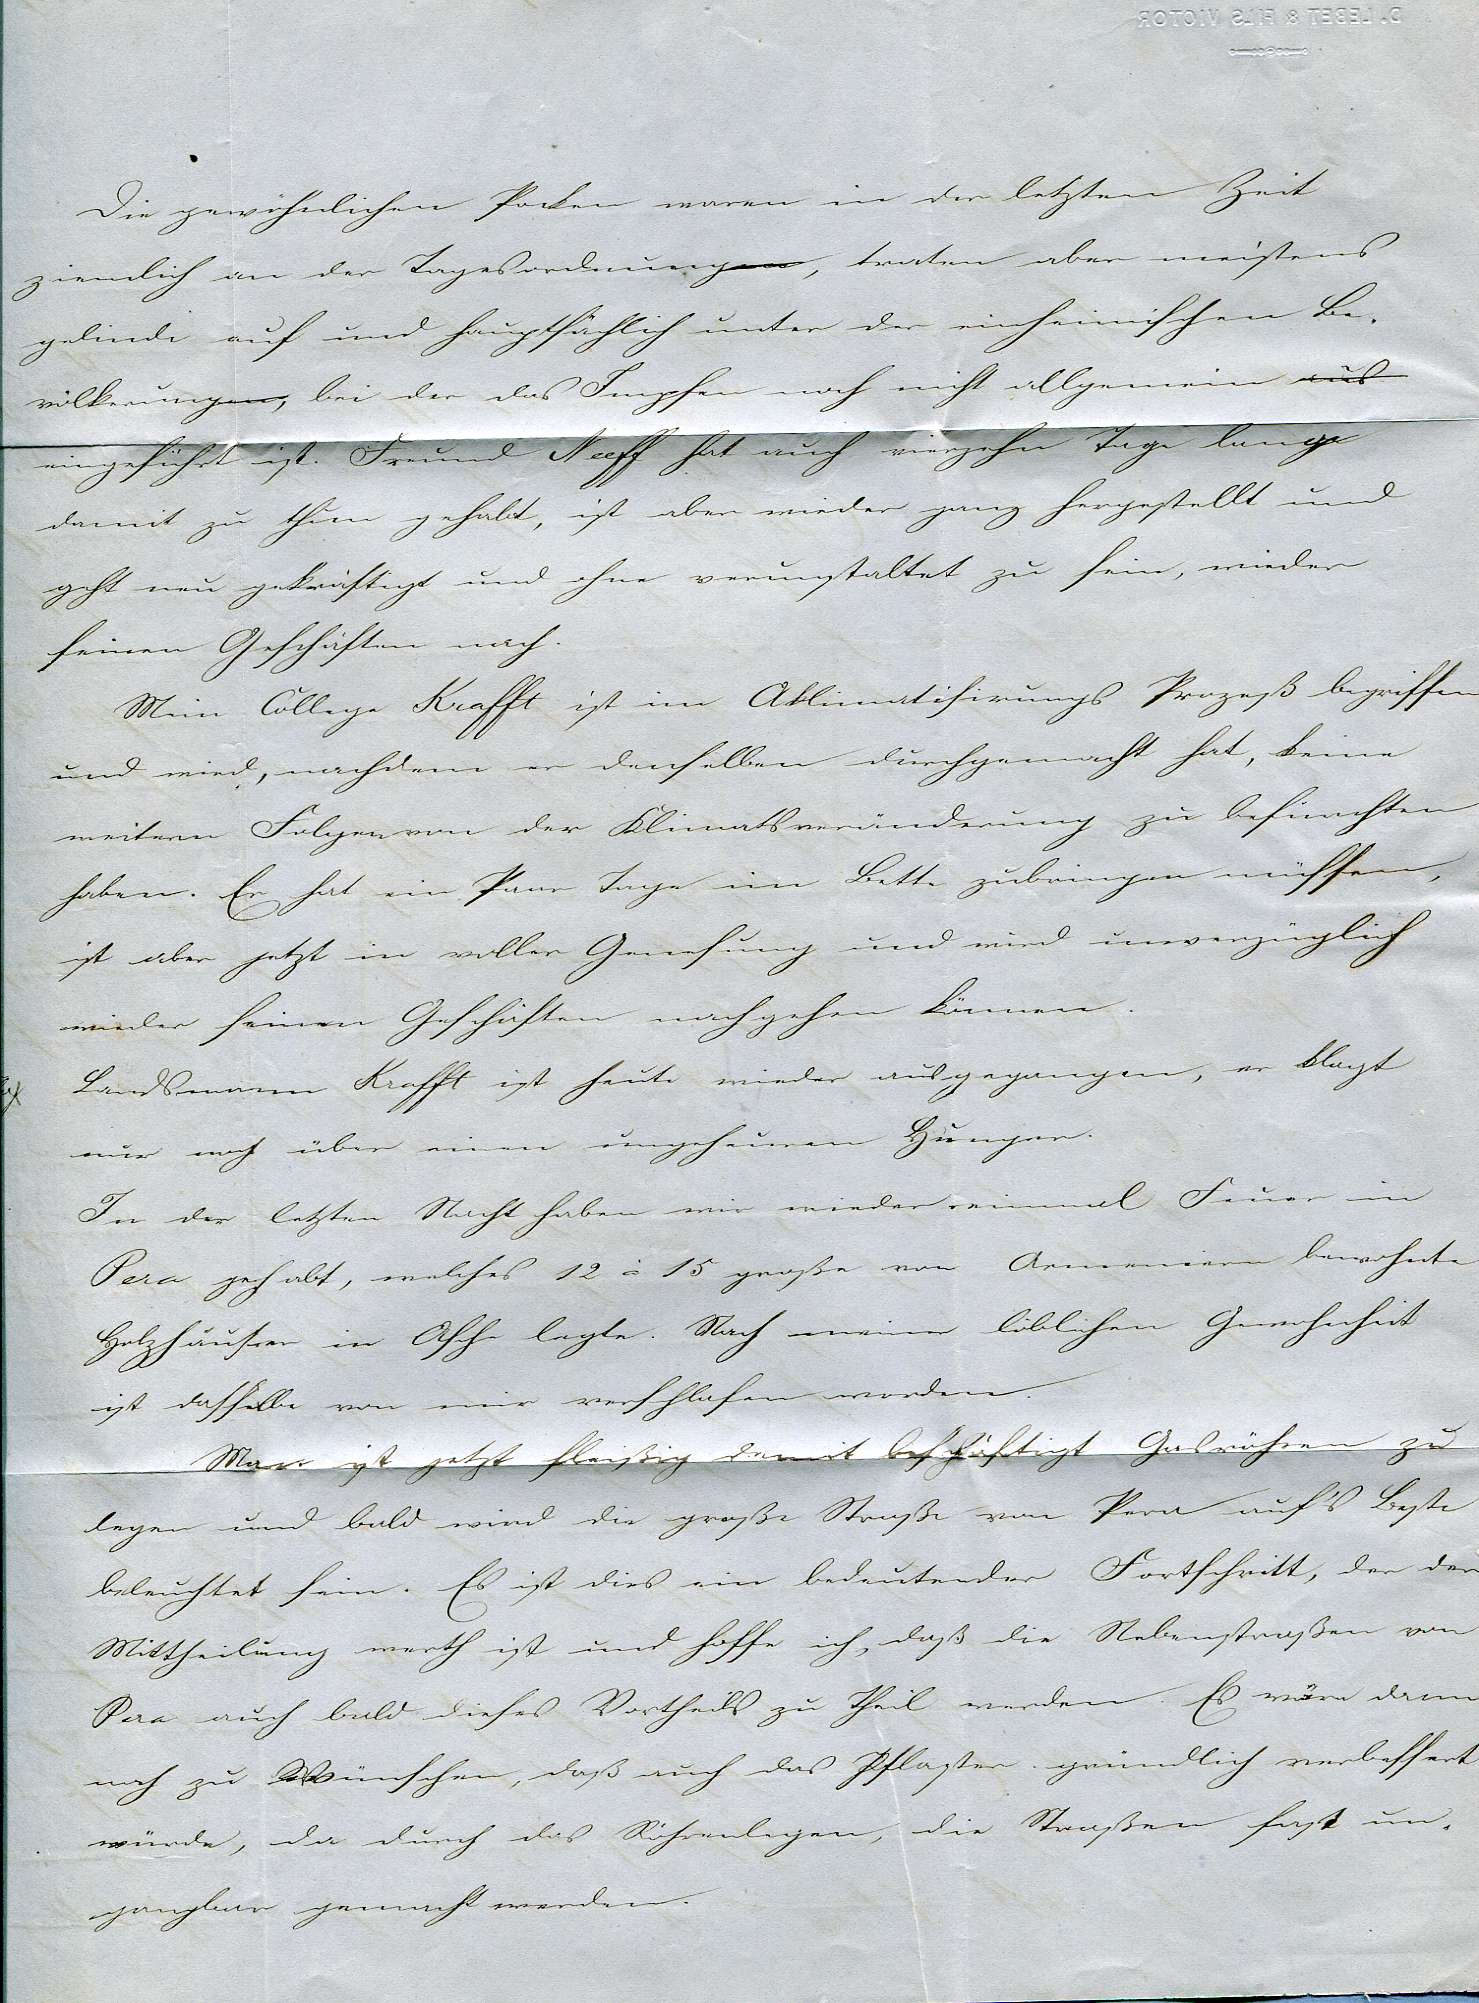 D. LEBET & FILS VICTOR
Die gewöhnlichen Pocken waren in der letzten Zeit
ziemlich an der Tagesordnungen, traten aber meistens
gelinde auf und hauptsächlich unter der einheimischen Be-
völkerungen, bei der das Impfen noch nicht allgemein aus
eingeführt ist. Freund Neeff hat auch vierzehn Tage lange
damit zu thun gehabt, ist aber wieder ganz hergestellt und
geht neu gekräftigt und ohne verunstaltet zu sein, wieder
seinen Geschäften nach.
Mein College Krafft ist im Aklimatisirungs Prozeß begriffen
und wird, nachdem er denselben durchgemacht hat, keine
weitern Folgen von der Klimatsveränderung zu befürchten
haben. Er hat ein Paar Tage im Bette zubringen müssen,
ist aber jetzt in voller Genesung und wird unverzüglich
wieder seinen Geschäften nachgehen können.
Landsmann Krafft ist heute wieder ausgegangen, er klagt
nur noch über einen ungeheuren Hunger.
In der letzten Nacht haben wir wieder einmal Feuer in
Pera gehabt, welches 12 à 15 große von Armeniern bewohnte
Holzhäuser in Asche legte. Nach meiner löblichen Gewohnheit
ist dasselbe von mir verschlafen worden.
Man ist jetzt fleißig damit beschäftigt Gasröhren zu
legen und bald wird die große Straße von Pera auf's Beste
beleuchtet sein. Es ist dies ein bedeutender Fortschritt, der der
Mittheilung werth ist und hoffe ich, daß die Nebenstraßen von
Pera auch bald dieses Vortheils zu Theil werden. Es wäre dann
noch zu Wünschen, daß auch das Pflaster gründlich verbessert
würde, da durch das Röhrenlegen, die Straßen fast un-
gangbar gemacht werden.